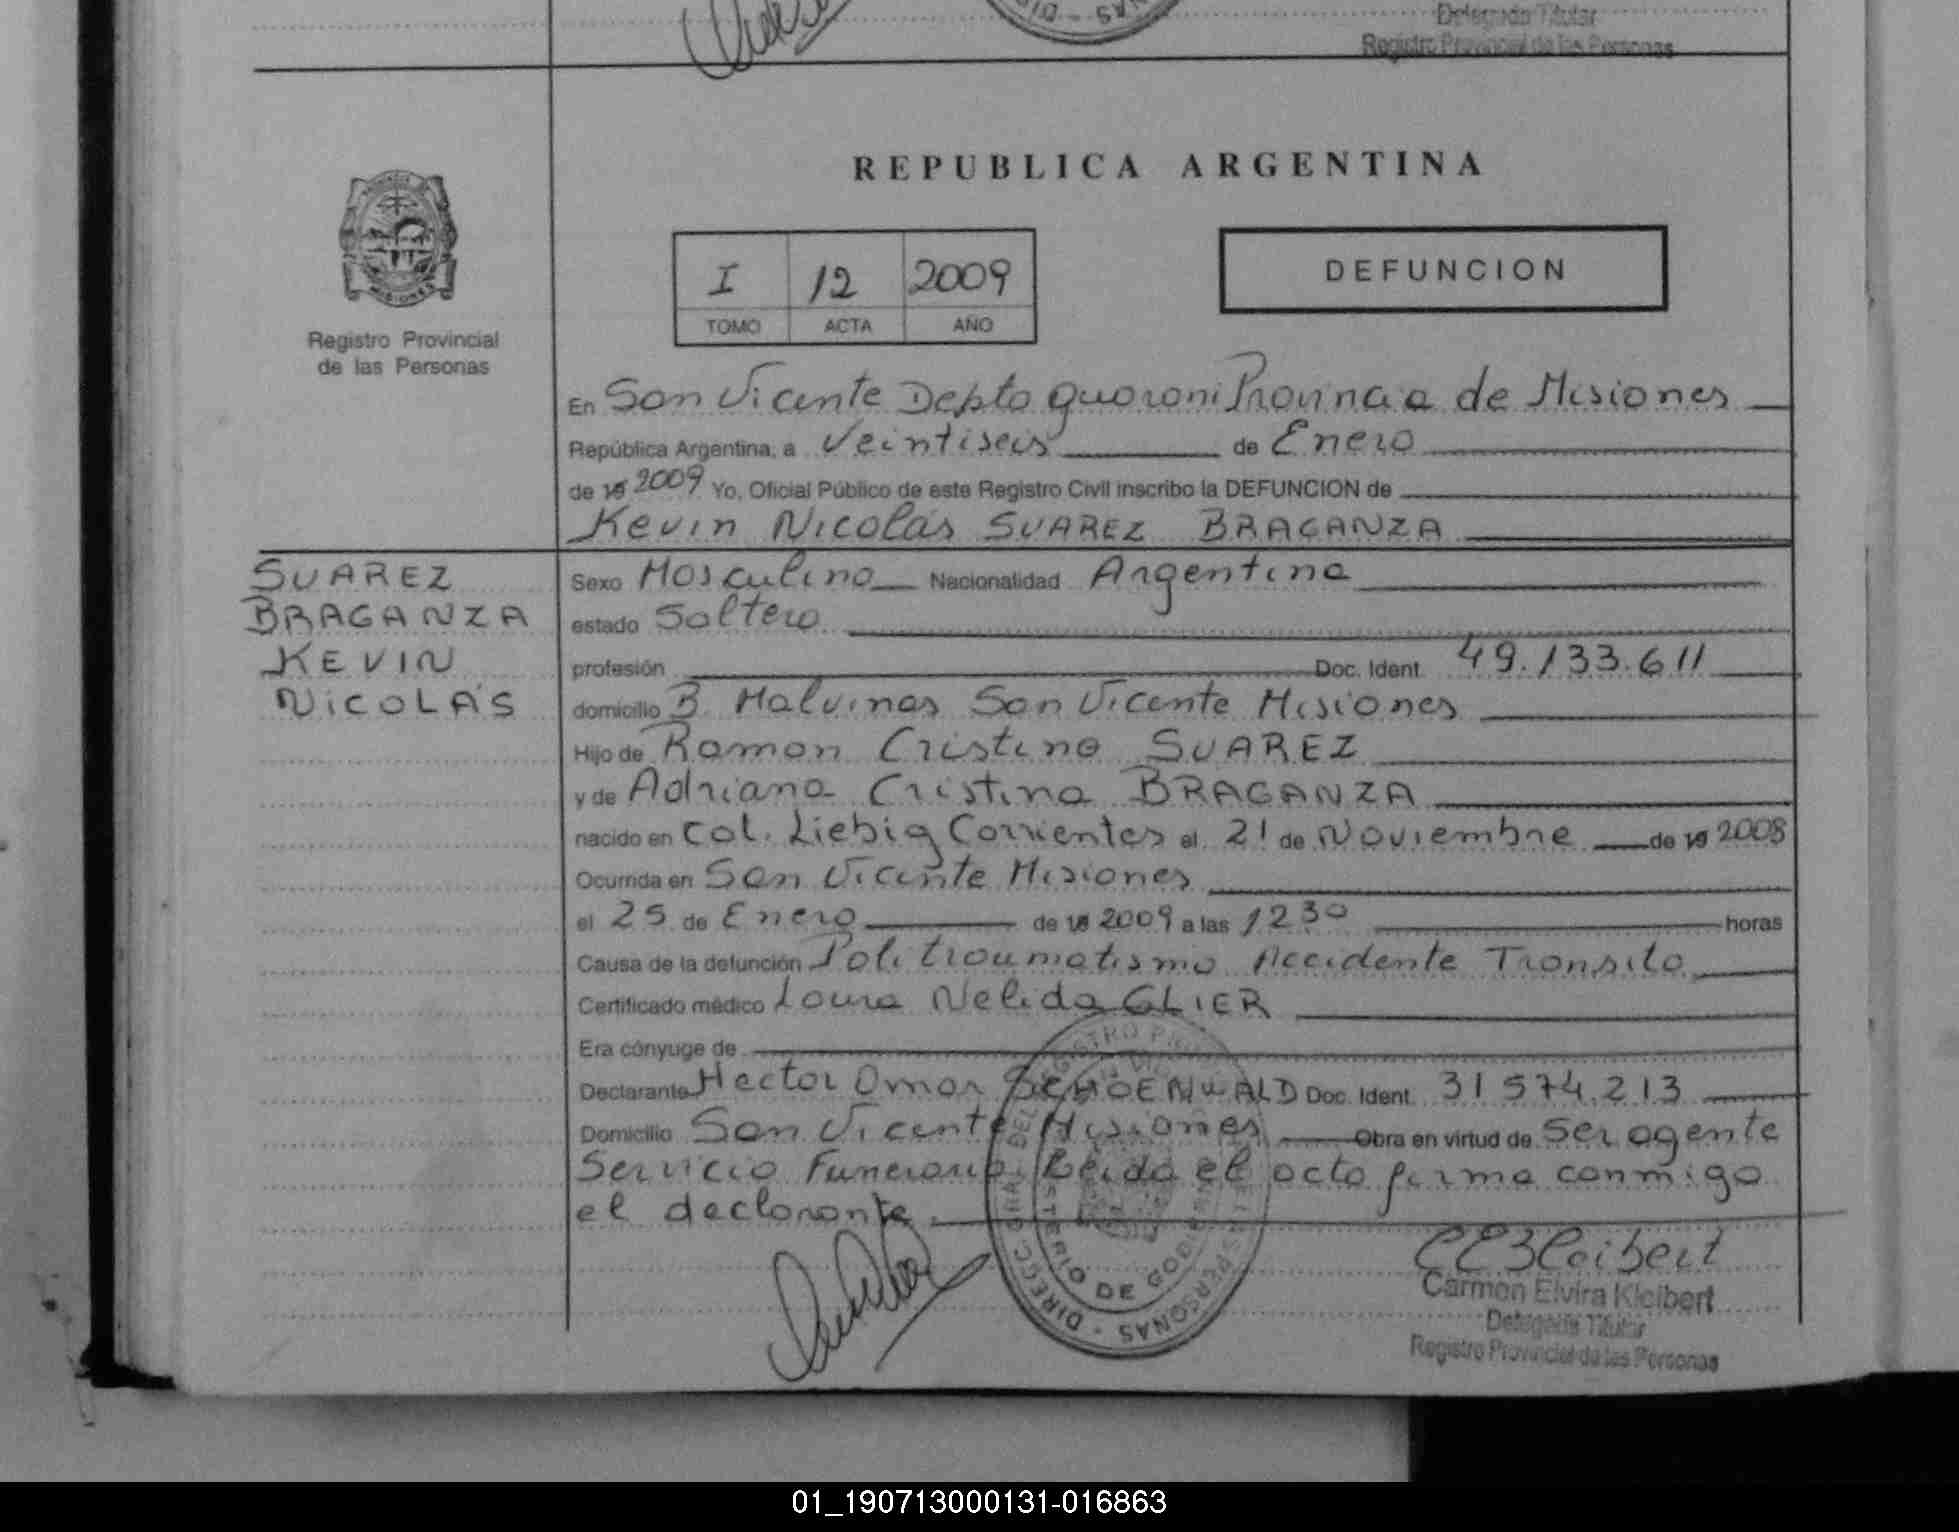 Delegada Titular
Registro Provincial de las Personas
REPUBLICA ARGENTINA
I 12 2009
TOMO ACTA AÑO
DEFUNCION
PROVINCIA DE
MISIONES
Registro Provincial
de las Personas
En San Vicente Depto guarani Provincia de Misiones
República Argentina, a Veintiseis de Enero
de 19 2009 Yo, Oficial Público de este Registro Civil inscribo la DEFUNCION de
Kevin Nicolás SUAREZ BRAGANZA
SUAREZ
BRAGANZA
KEVIN
NICOLÁS
Sexo Masculino Nacionalidad Argentina
estado Soltero
profesión Doc. Ident. 49.133.611
domicilio B. Malvinas San Vicente Misiones
Hijo de Ramon Cristino SUAREZ
y de Adriana Cristina BRAGANZA
nacido en Col. Liebig Corrientes el 21 de Noviembre de 19 2008
Ocurrida en San Vicente Misiones
el 25 de Enero de 19 2009 a las 12 30 horas
Causa de la defunción Politraumatismo Accidente Transito
Certificado médico Laura Nelida GLIER
Era cónyuge de
Declarante Hector Omar SCHOENWALD Doc. Ident. 31 574.213
Domicilio San Vicente Misiones Obra en virtud de Ser agente
Servicio Funerario Leida el acta firma conmigo
el declarante
CEKleibert
Carmen Elvira Kleibert
Delegada Titular
Registro Provincial de las Personas
01_190713000131-016863